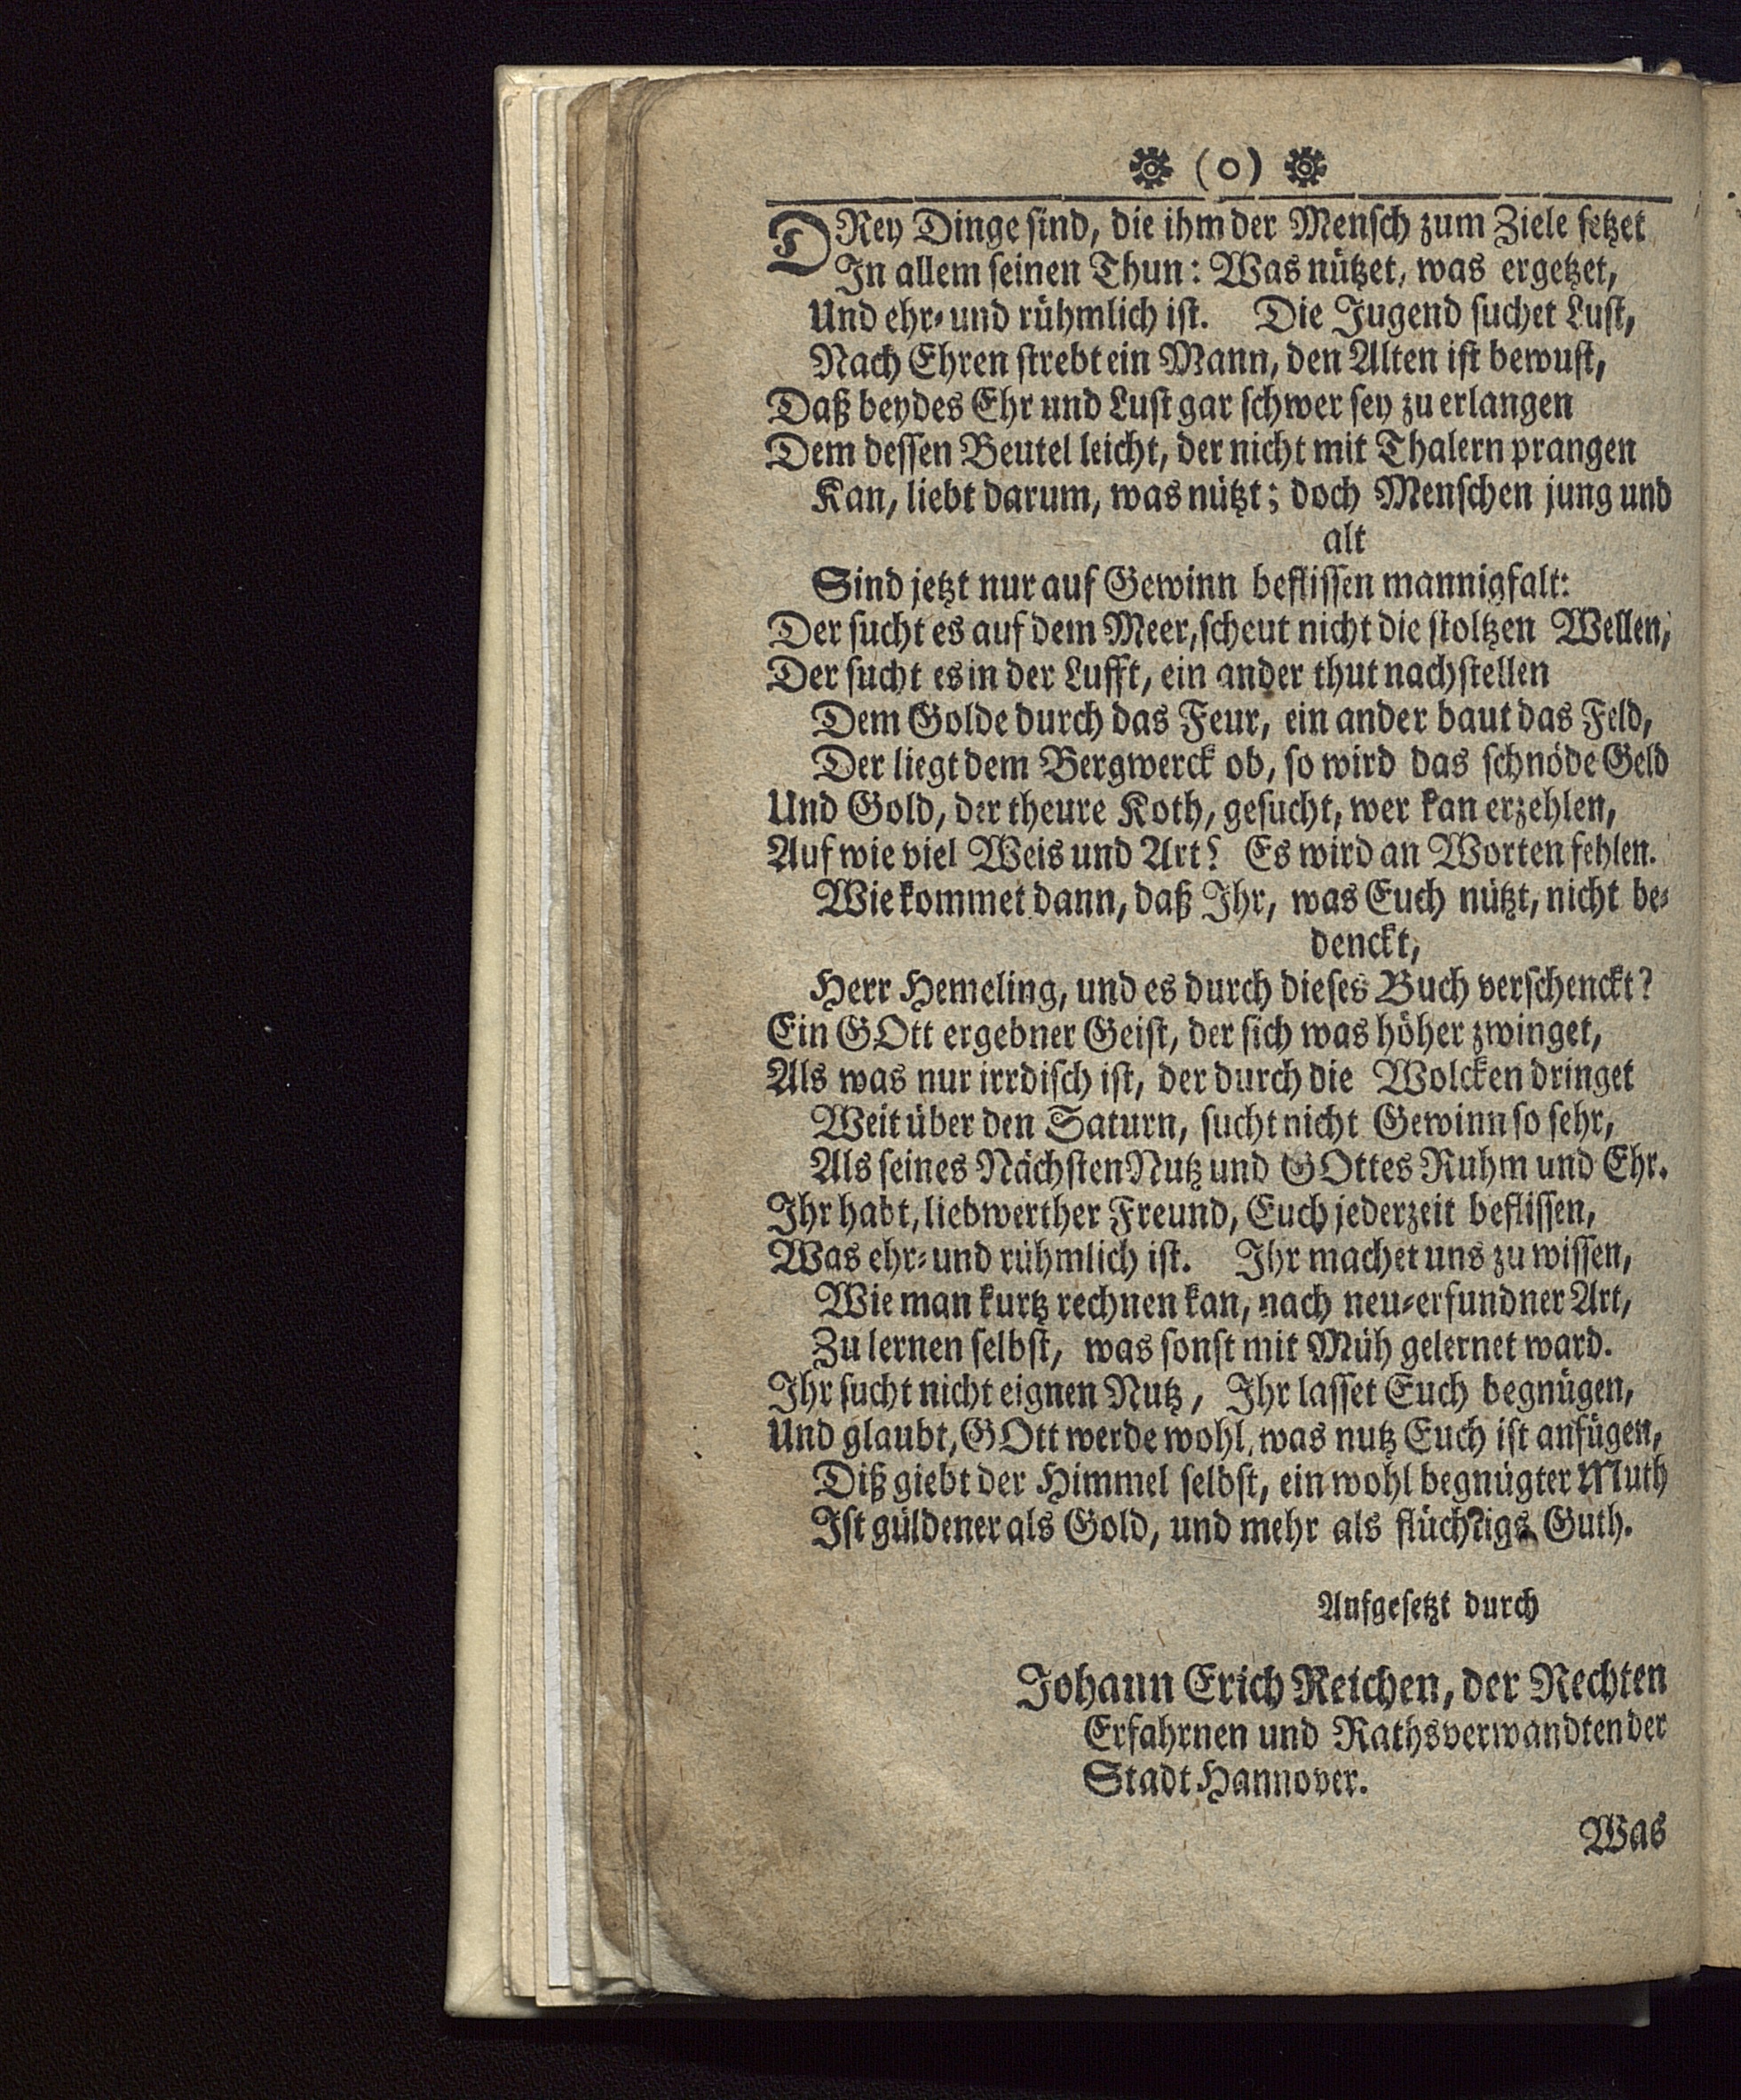 (o)
DRey Dinge sind, die ihm der Mensch zum Ziele setzet
In allem seinen Thun: Was nützet, was ergetzet,
Und ehr- und rühmlich ist. Die Jugend suchet Lust,
Nach Ehren strebt ein Mann, den Alten ist bewust,
Daß beydes Ehr und Lust gar schwer sey zu erlangen
Dem dessen Beutel leicht, der nicht mit Thalern prangen
Kan, liebt darum, was nützt; doch Menschen jung und
alt
Sind jetzt nur auf Gewinn beflissen mannigfalt:
Der sucht es auf dem Meer, scheut nicht die stoltzen Wellen,
Der sucht es in der Lufft, ein ander thut nachstellen
Dem Golde durch das Feur, ein ander baut das Feld,
Der liegt dem Bergwerck ob, so wird das schnöde Geld
Und Gold, der theure Koth, gesucht, wer kan erzehlen,
Auf wie viel Weis und Art? Es wird an Worten fehlen.
Wie kommet dann, daß Ihr, was Euch nützt, nicht be-
denckt,
Herr Hemeling, und es durch dieses Buch verschenckt?
Ein GOtt ergebner Geist, der sich was höher zwinget,
Als was nur irrdisch ist, der durch die Wolcken dringet
Weit über den Saturn, sucht nicht Gewinn so sehr,
Als seines Nächsten Nutz und GOttes Ruhm und Ehr.
Ihr habt, liebwerther Freund, Euch jederzeit beflissen,
Was ehr- und rühmlich ist. Ihr machet uns zu wissen,
Wie man kurtz rechnen kan, nach neu-erfundner Art,
Zu lernen selbst, was sonst mit Müh gelernet ward.
Ihr sucht nicht eignen Nutz, Ihr lasset Euch begnügen,
Und glaubt, GOtt werde wohl, was nutz Euch ist anfügen,
Diß giebt der Himmel selbst, ein wohl begnügter Muth
Ist güldener als Gold, und mehr als flüchtigs Guth.
Aufgesetzt durch
Johann Erich Reichen, der Rechten
Erfahrnen und Rathsverwandten der
Stadt Hannover.
Was